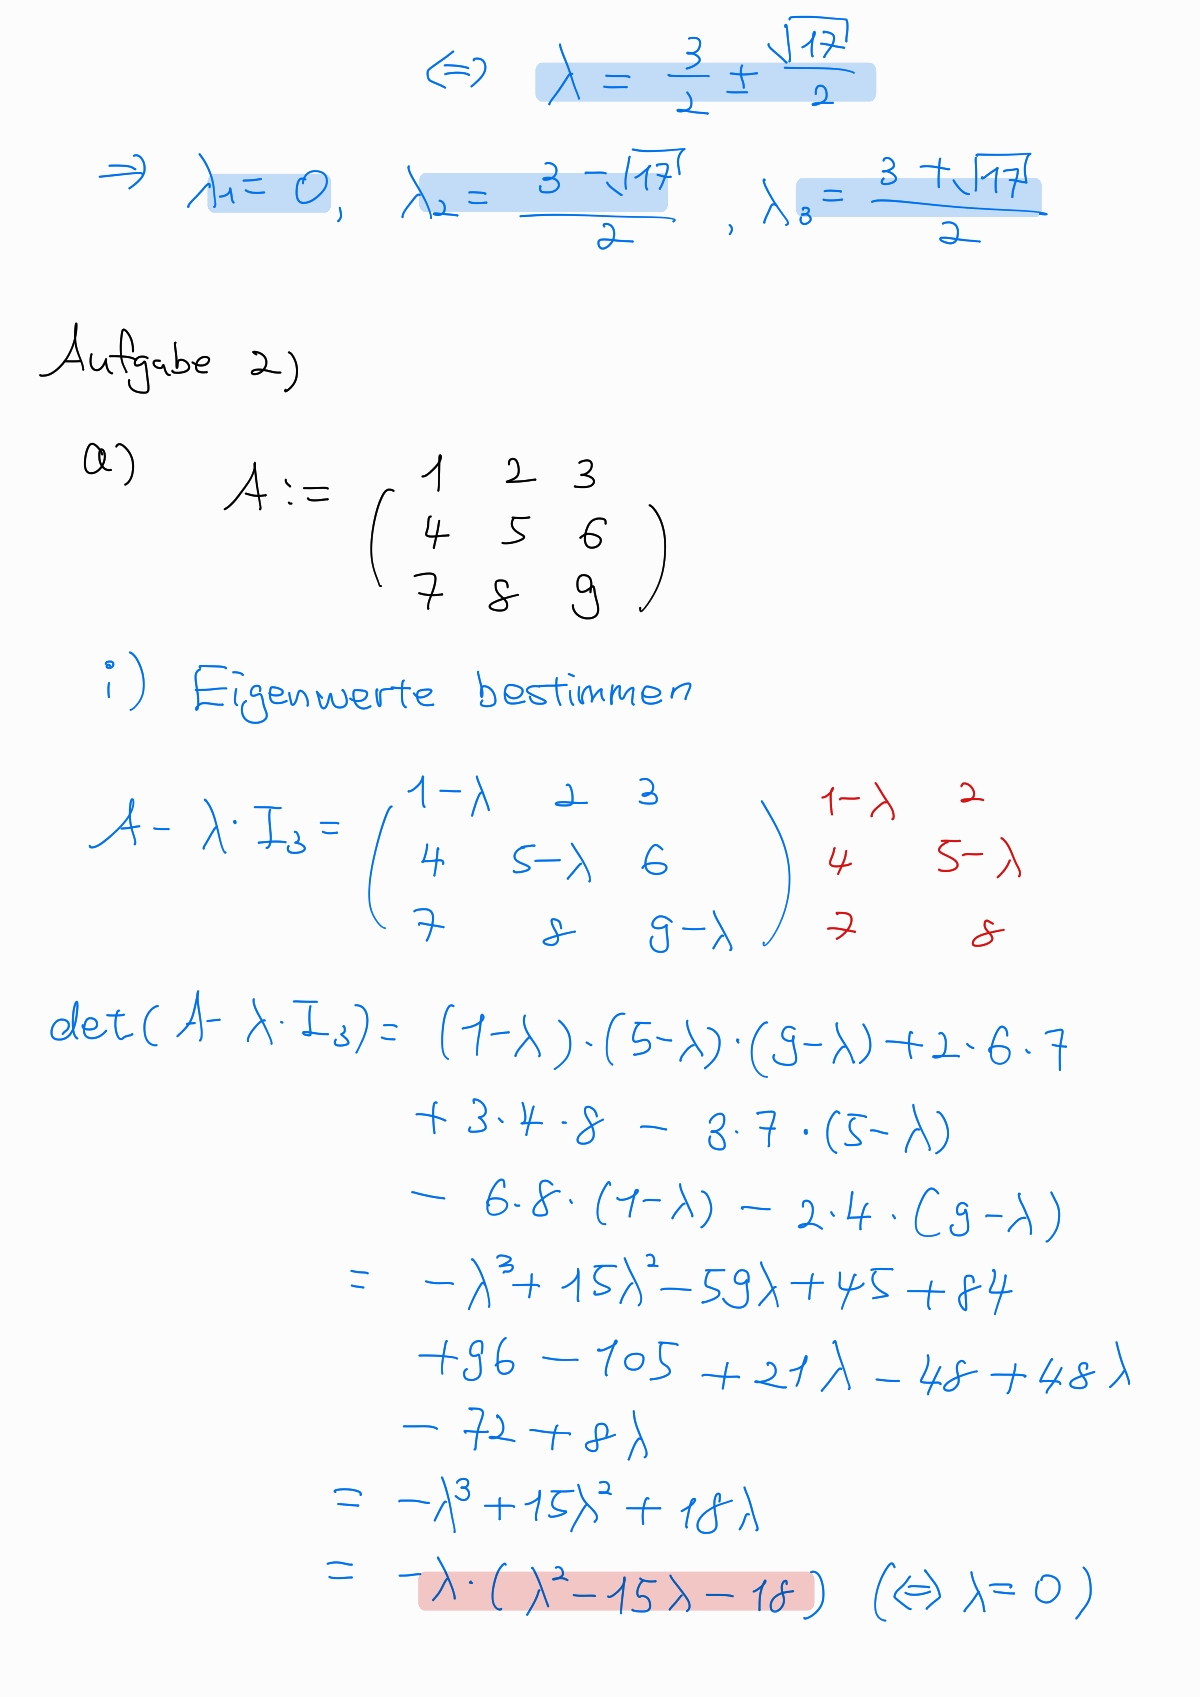 ⇔ λ = 3/2 ± √17/2
⇒ λ₁ = 0, λ₂ = (3 − √17)/2, λ₃ = (3 + √17)/2
Aufgabe 2)
a) A := ( 1 2 3
4 5 6
7 8 9 )
i) Eigenwerte bestimmen
A − λ · I₃ = ( 1−λ 2 3 ) 1−λ 2
4 5−λ 6 4 5−λ
7 8 9−λ 7 8
det(A − λ · I₃) = (1−λ) · (5−λ) · (9−λ) + 2 · 6 · 7
+ 3 · 4 · 8 − 3 · 7 · (5−λ)
− 6 · 8 · (1−λ) − 2 · 4 · (9−λ)
= −λ³ + 15λ² − 59λ + 45 + 84
+96 − 105 + 21λ − 48 + 48λ
− 72 + 8λ
= −λ³ + 15λ² + 18λ
= −λ · (λ² − 15λ − 18) (⇔ λ = 0)